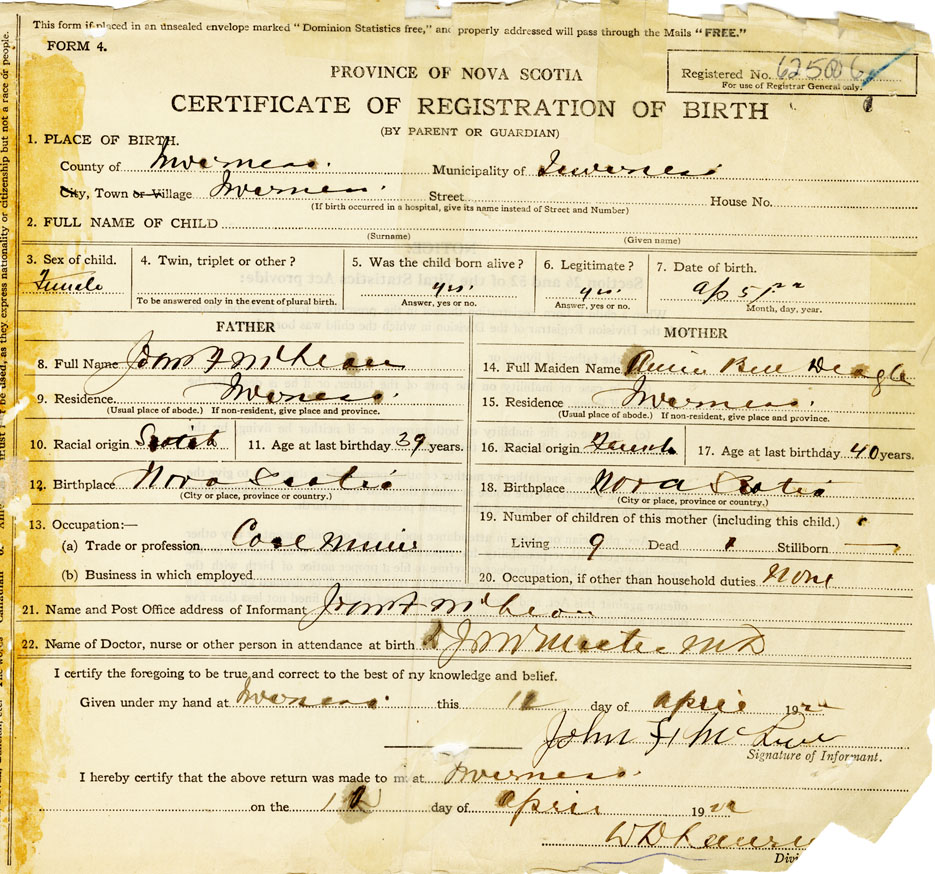 This form if placed in an unsealed envelope marked "Dominion Statistics free," and properly addressed will pass through the Mails "FREE."
FORM 4.
PROVINCE OF NOVA SCOTIA
Registered No. 625006
For use of Registrar General only.
CERTIFICATE OF REGISTRATION OF BIRTH
(BY PARENT OR GUARDIAN)
1. PLACE OF BIRTH.
County of Inverness. Municipality of Inverness
City, Town or Village Inverness. Street House No.
(If birth occurred in a hospital, give its name instead of Street and Number)
2. FULL NAME OF CHILD
(Surname) (Given name)
3. Sex of child. 4. Twin, triplet or other? 5. Was the child born alive? 6. Legitimate? 7. Date of birth.
Female yes yes Ap 5
To be answered only in the event of plural birth. Answer, yes or no. Answer, yes or no. Month, day, year.
FATHER MOTHER
8. Full Name John F McLean 14. Full Maiden Name Annie Bell Deagle
9. Residence. Inverness. 15. Residence Inverness.
(Usual place of abode.) If non-resident, give place and province. (Usual place of abode.) If non-resident, give place and province.
10. Racial origin Scotch 11. Age at last birthday 39 years. 16. Racial origin French 17. Age at last birthday 40 years.
12. Birthplace Nova Scotia 18. Birthplace Nova Scotia
(City or place, province or country.) (City or place, province or country.)
13. Occupation:— 19. Number of children of this mother (including this child.)
(a) Trade or profession Coal Miner Living 9 Dead 1 Stillborn —
(b) Business in which employed 20. Occupation, if other than household duties None
21. Name and Post Office address of Informant John F McLean
22. Name of Doctor, nurse or other person in attendance at birth MD
I certify the foregoing to be true and correct to the best of my knowledge and belief.
Given under my hand at Inverness this 12 day of April 1922
John F McLean
Signature of Informant.
I hereby certify that the above return was made to m at Inverness.
on the 12 day of April 1922
W D
Divi